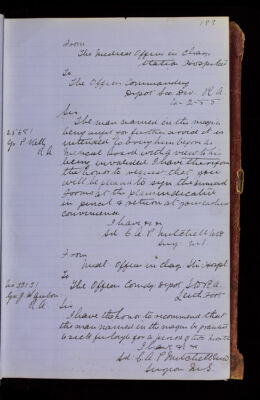 183
From
The Medical Officer in Charge
Station Hospital
To
The Officer Commanding
Depot Sco. Div. R A
Sir
The man named in the margin
being unfit for further service it is
intended to bring him before a
Medical Board with a view to his
being invalided. I have therefore
the honor to request that you
will be pleased to sign the
Forms at the places indicated
in pencil & return at your earliest
convenience
I have &c
Sd. C A P Mitchell MB
Surg. M.S.
Gr. P. Kelly
R.A.
From
Medl. Officer in Chag. Stn. Hospl.
To
The Officer Comdg Depot Sco R.A.
Leith Fort
Sir
I have the honor to recommend that
the man named in the margin be granted
a sick furlough for a period of two months
I have &c
Sd. C A P Mitchell MB
Surgeon M.S.
R.A.